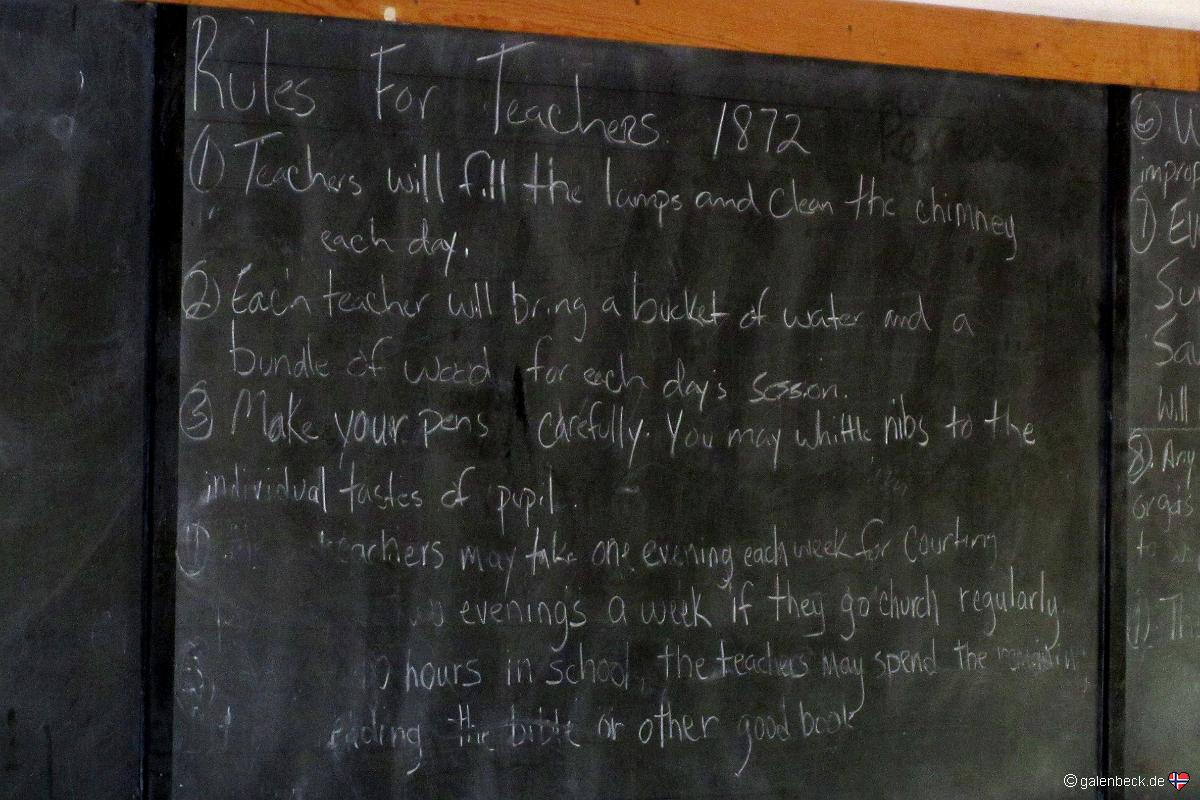 Rules For Teachers 1872
① Teachers will fill the lamps and clean the chimney
each day.
② Each teacher will bring a bucket of water and a
bundle of wood for each day's session.
③ Make your pens carefully. You may whittle nibs to the
individual tastes of pupil.
teachers may take one evening each week for courting
evening's a week if they go church regularly
hours in school, the teachers may spend the
the bible or other good book
⑥
improp
⑦ Ev
Su
Sa
will
⑧. Any
orgas
to
© galenbeck.de